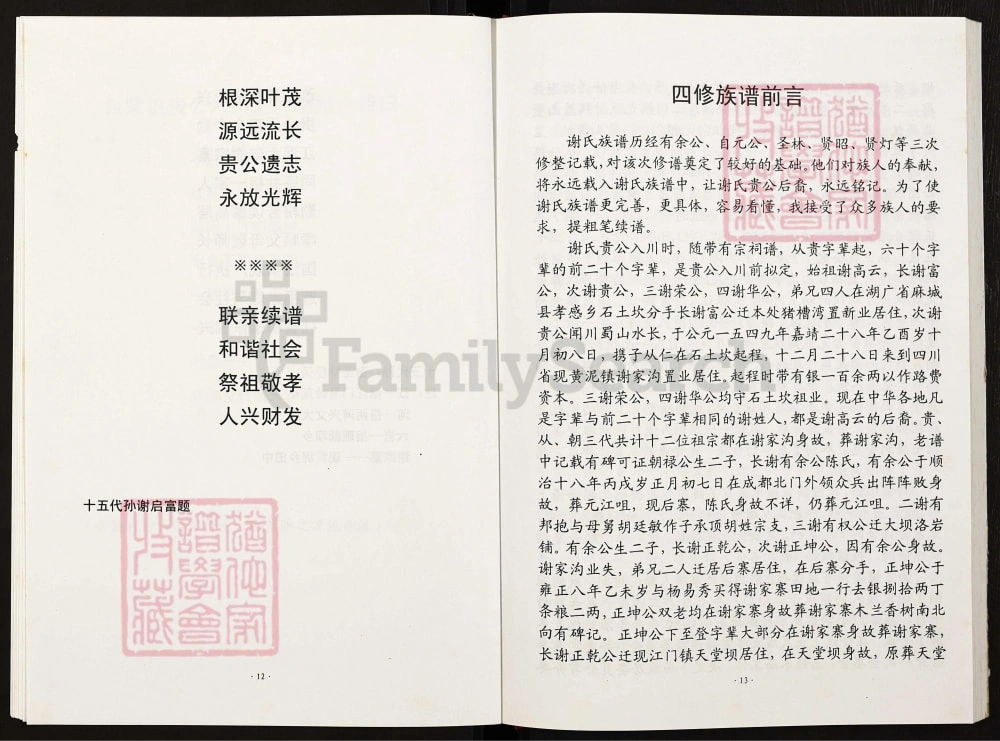 根深叶茂
源远流长
贵公遗志
永放光辉
※※※※
联亲续谱
和谐社会
祭祖敬孝
人兴财发
十五代孙谢启富题
· 12 ·
四修族谱前言
谢氏族谱历经有余公、自元公、圣林、贤昭、贤灯等三次
修整记载，对该次修谱奠定了较好的基础。他们对族人的奉献，
将永远载入谢氏族谱中，让谢氏贵公后裔，永远铭记。为了使
谢氏族谱更完善，更具体，容易看懂，我接受了众多族人的要
求，提粗笔续谱。
谢氏贵公入川时，随带有宗祠谱，从贵字辈起，六十个字
辈的前二十个字辈，是贵公入川前拟定，始祖谢高云，长谢富
公，次谢贵公，三谢荣公，四谢华公，弟兄四人在湖广省麻城
县孝感乡石土坎分手长谢富公迁本处猪槽湾置新业居住，次谢
贵公闻川蜀山水长，于公元一五四九年嘉靖二十八年乙酉岁十
月初八日，携子从仁在石土坎起程，十二月二十八日来到四川
省现黄泥镇谢家沟置业居住。起程时带有银一百余两以作路费
资本。三谢荣公，四谢华公均守石土坎祖业。现在中华各地凡
是字辈与前二十个字辈相同的谢姓人，都是谢高云的后裔。贵、
从、朝三代共计十二位祖宗都在谢家沟身故，葬谢家沟，老谱
中记载有碑可证朝禄公生二子，长谢有余公陈氏，有余公于顺
治十八年丙戌岁正月初七日在成都北门外领众兵出阵阵败身
故，葬元江咀，现后寨，陈氏身故不详，仍葬元江咀。二谢有
邦抱与母舅胡廷敏作子承顶胡姓宗支，三谢有权公迁大坝洛岩
铺。有余公生二子，长谢正乾公，次谢正坤公，因有余公身故。
谢家沟业失，弟兄二人迁居后寨居住，在后寨分手，正坤公于
雍正八年乙未岁与杨易秀买得谢家寨田地一行去银捌拾两丁
条粮二两，正坤公双老均在谢家寨身故葬谢家寨木兰香树南北
向有碑记。正坤公下至登字辈大部分在谢家寨身故葬谢家寨，
长谢正乾公迁现江门镇天堂坝居住，在天堂坝身故，原葬天堂
· 13 ·
FamilySearch